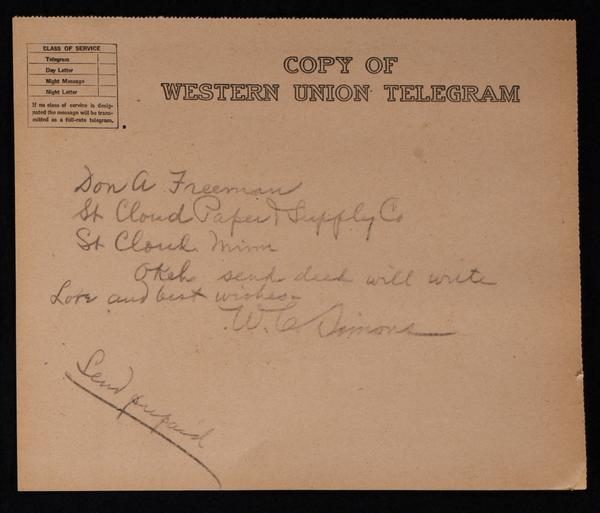 CLASS OF SERVICE
Telegram
Day Letter
Night Message
Night Letter
If no class of service is desig-
nated the message will be trans-
mitted as a full-rate telegram.
COPY OF
WESTERN UNION TELEGRAM
Don A Freeman
St Cloud Paper & Supply Co
St Cloud Minn
Okeh send deed will write
Love and best wishes
W. C. Simons
Send prepaid